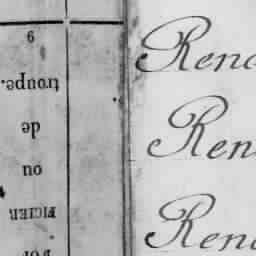 9
troupe.
de
ou
FICIER
Rena
Ren
Rena